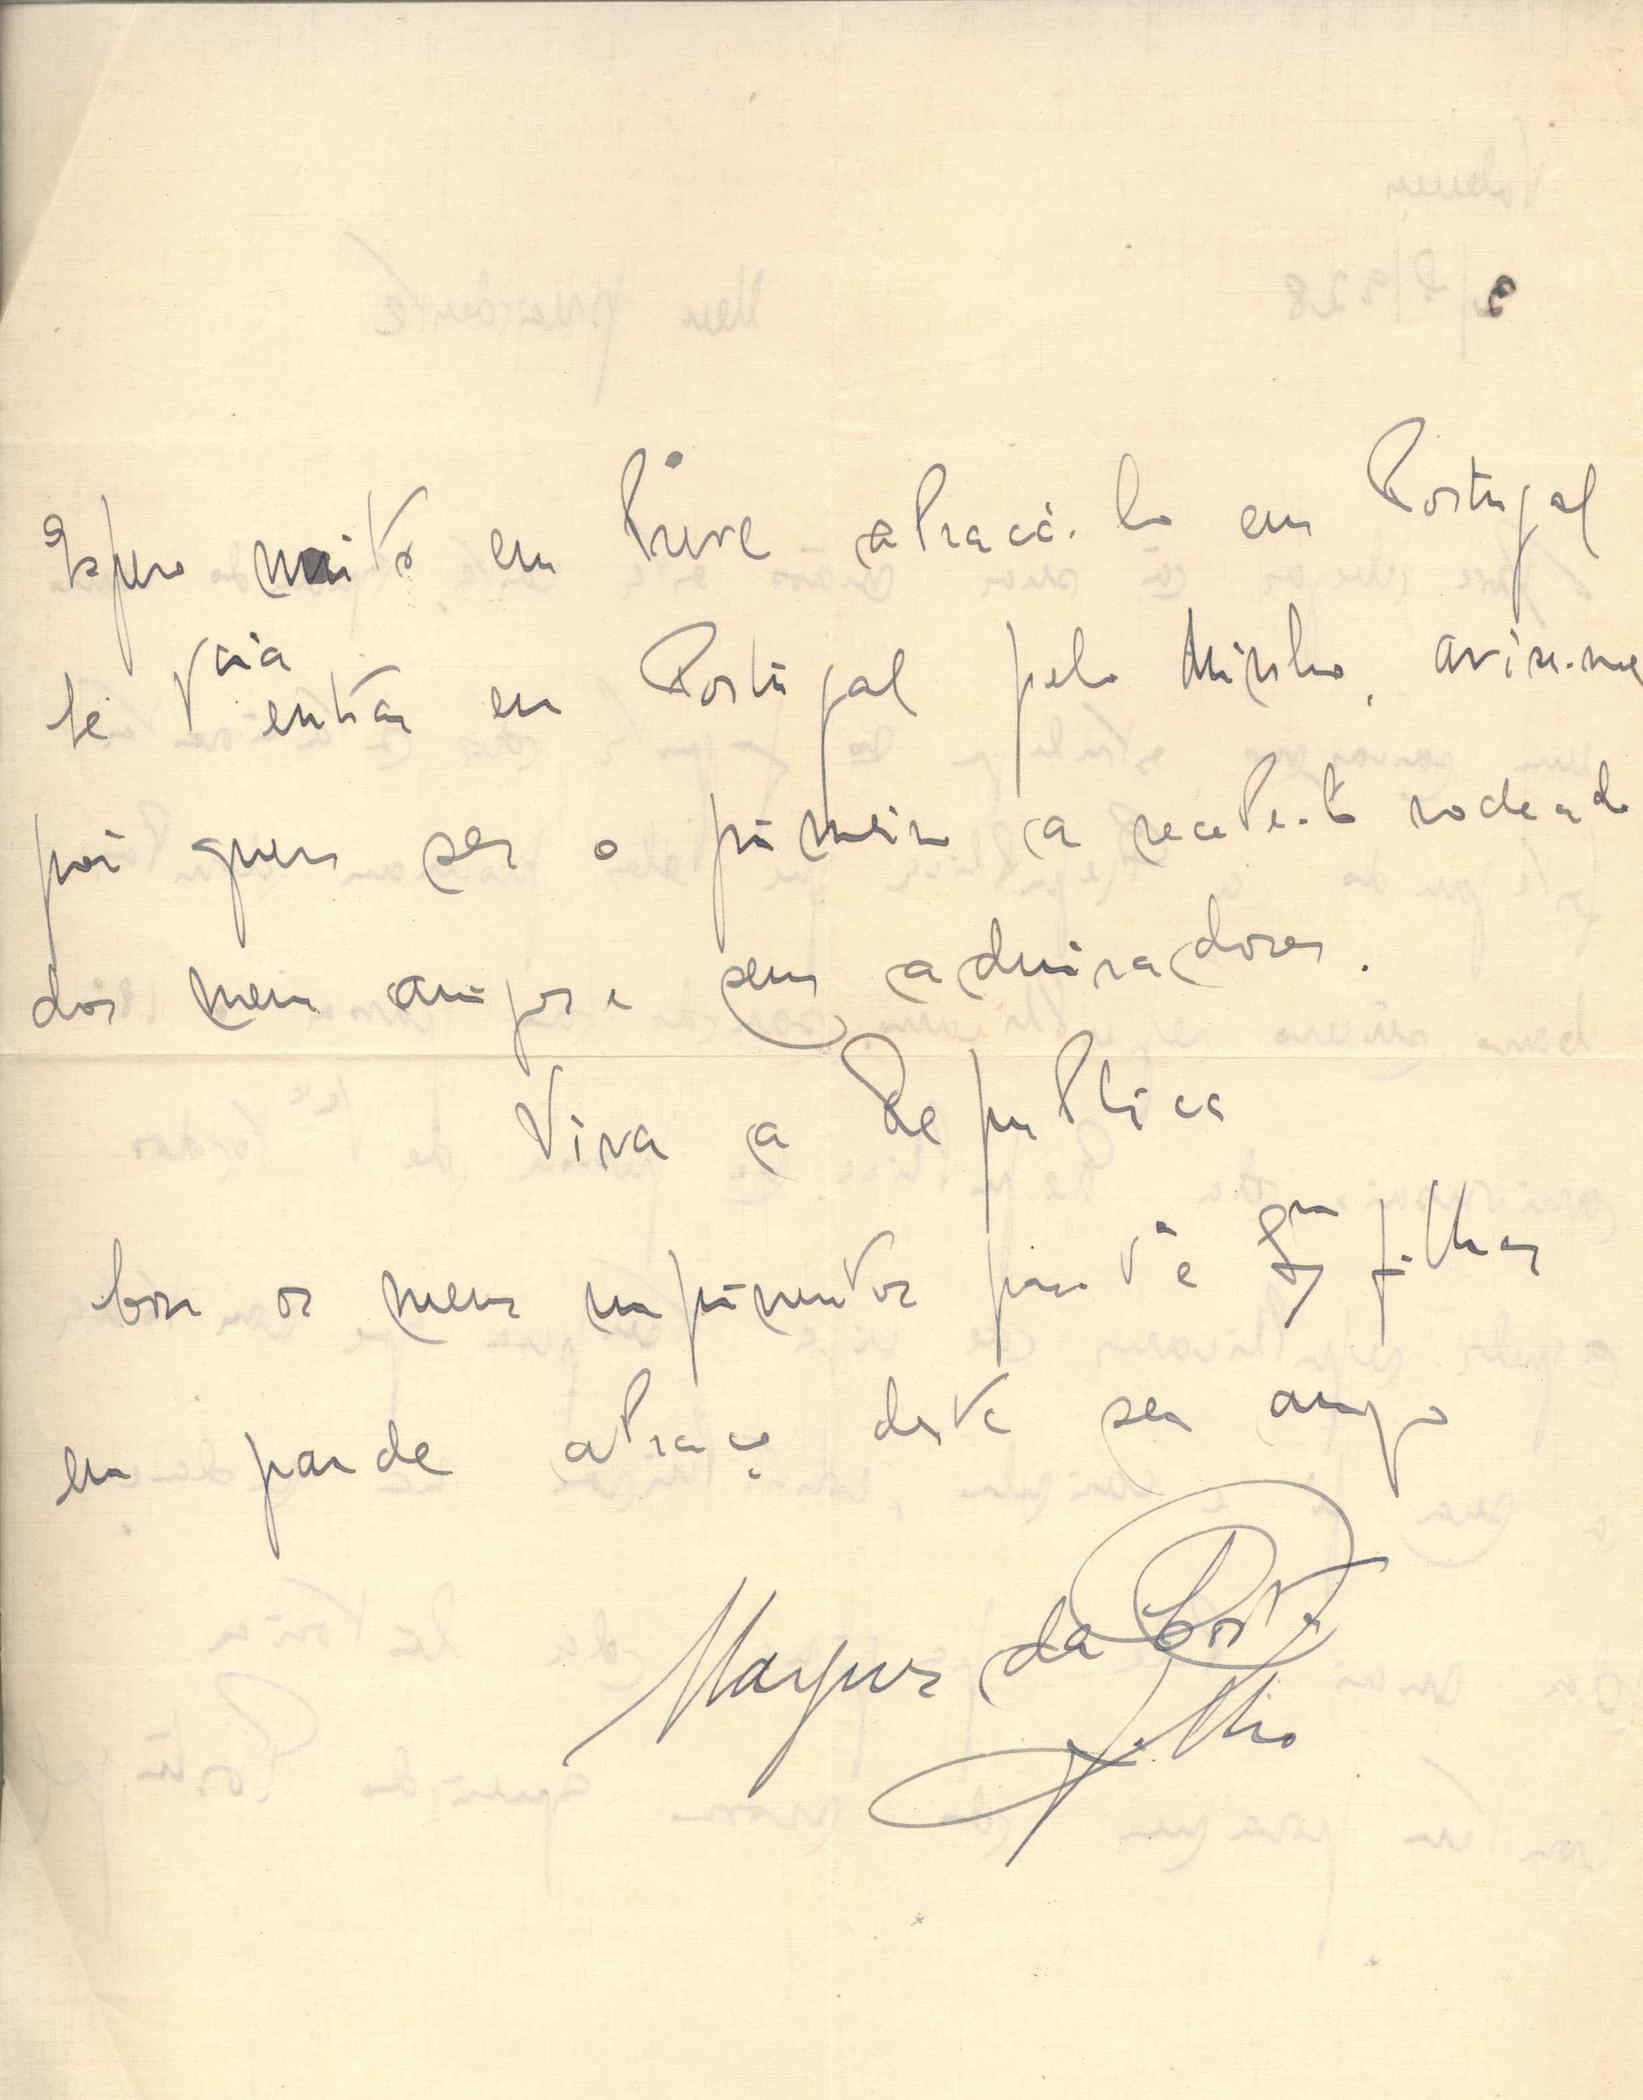 Espero muito em breve abraçá-lo em Portugal
se vaia entrar em Portugal pelo Minho, avise-me
pois quero ser o primeiro a recebe-lo rodeado
dos meus amigos e seus admiradores.
Viva a Republica
Com os meus cumprimentos para filhas
um grande abraço deste seu amigo
Marques da Costa
filho